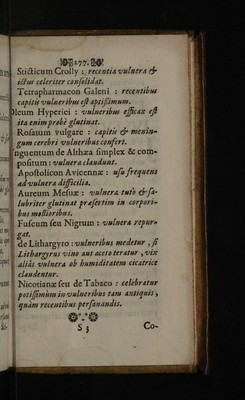 277.
Sticticum Crolly : recentia vulnera &
ictus celeriter consolidat.
Tetrapharmacon Galeni : recentibus
capitis vulneribus est aptissimum.
leum Hyperici : vulneribus efficax est
ita enim probè glutinat.
Rosatum vulgare : capitis & menin-
gum cerebri vulneribus confert.
nguentum de Althæa simplex & com-
positum : vulnera claudunt.
Apostolicon Avicennæ : usu frequens
ad vulnera difficilia.
Aureum Mesuæ : vulnera tutò & sa-
lubriter glutinat præsertim in corpori-
bus mollioribus.
Fuscum seu Nigrum : vulnera repur-
gat.
de Lithargyro : vulneribus medetur , si
Lithargyrus vino aut aceto teratur , vix
aliàs vulnera ob humiditatem cicatrice
claudentur.
Nicotianæ seu de Tabaco : celebratur
potissimùm in vulneribus tam antiquis ,
quàm recentibus persanandis.
S 3 Co-